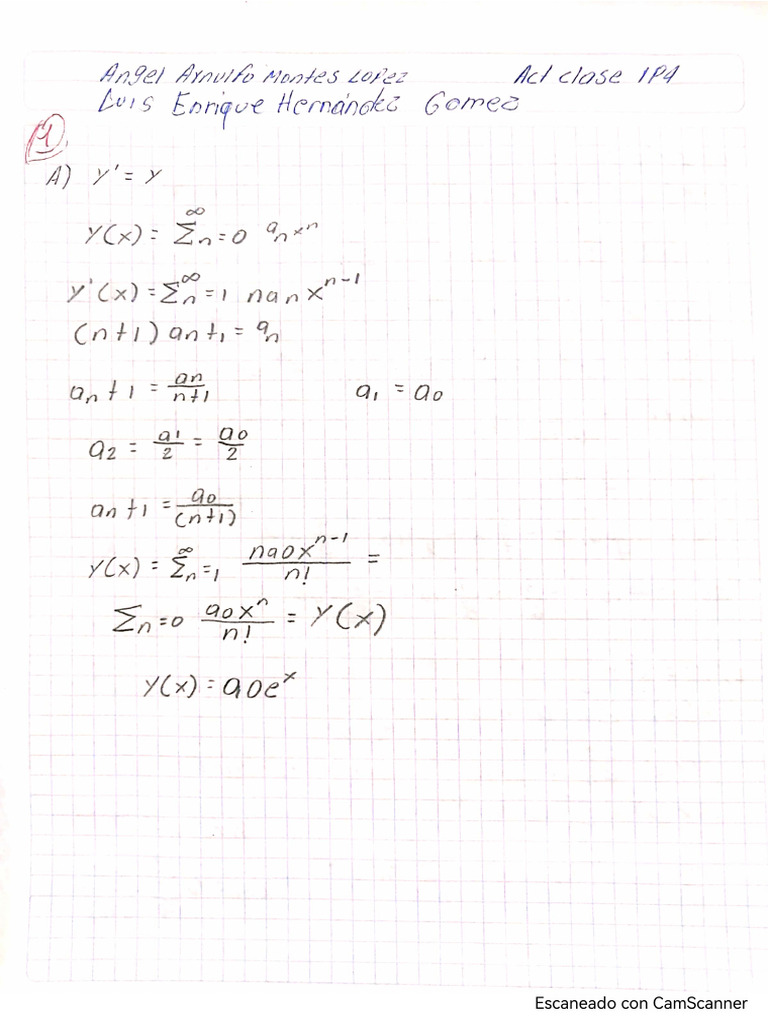 Angel Arnulfo Montes Lopez Act clase 1P4
Luis Enrique Hernández Gomez
1.
A) y' = y
y(x) = Σ_{n=0}^{∞} a_n x^n
y'(x) = Σ_{n=1}^{∞} n a_n x^{n-1}
(n+1) a_{n+1} = a_n
a_n + 1 = a_n / (n+1) a_1 = a_0
a_2 = a_1/2 = a_0/2
a_n + 1 = a_0 / (n+1)
y(x) = Σ_{n=1}^{∞} n a_0 x^{n-1} / n! =
Σ_{n=0} a_0 x^n / n! = y(x)
y(x) = a_0 e^x
Escaneado con CamScanner